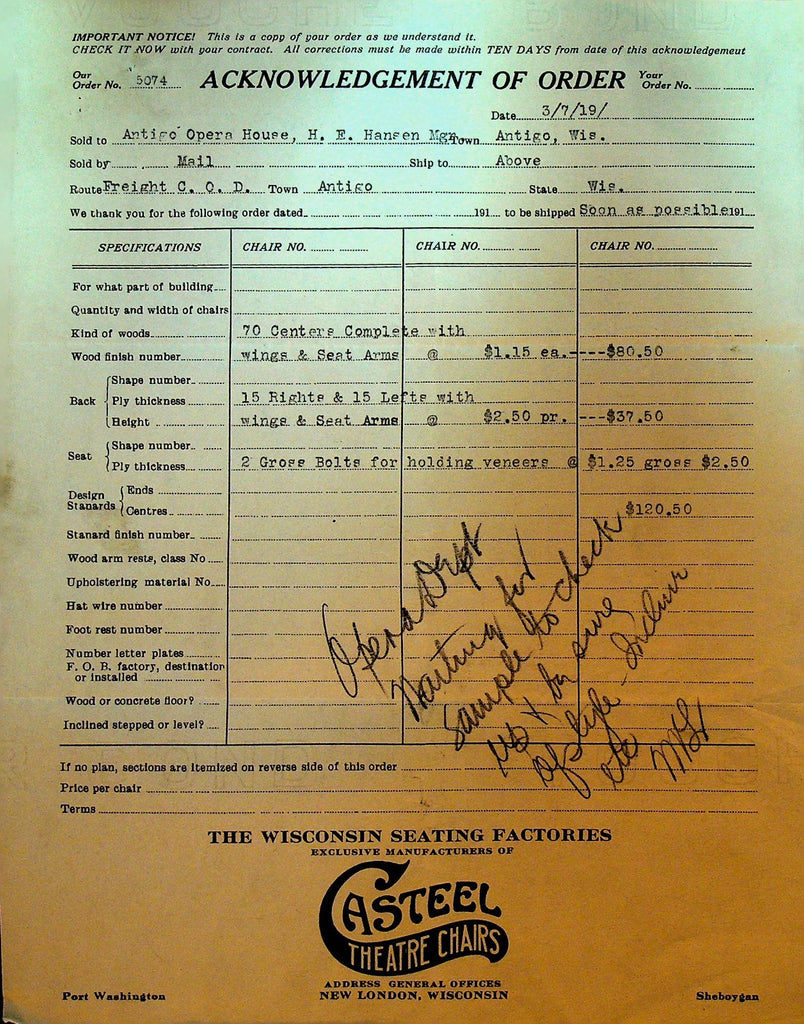 IMPORTANT NOTICE! This is a copy of your order as we understand it.
CHECK IT NOW with your contract. All corrections must be made within TEN DAYS from date of this acknowledgement
Our Order No. 5074 ACKNOWLEDGEMENT OF ORDER Your Order No.
Date 3/7/19/
Sold to Antigo Opera House, H. E. Hansen Mgr Town Antigo, Wis.
Sold by Mail Ship to Above
Route Freight C. O. D. Town Antigo State Wis.
We thank you for the following order dated 191 to be shipped Soon as possible 191
SPECIFICATIONS CHAIR NO. CHAIR NO. CHAIR NO.
For what part of building
Quantity and width of chairs
Kind of woods 70 Centers Complete with
Wood finish number wings & Seat Arms @ $1.15 ea.----$80.50
Shape number
Back Ply thickness 15 Rights & 15 Lefts with
Height wings & Seat Arms @ $2.50 pr. ---$37.50
Shape number
Seat Ply thickness 2 Gross Bolts for holding veneers @ $1.25 gross $2.50
Design Stanards Ends
Centres $120.50
Stanard finish number
Wood arm rests, class No
Upholstering material No
Hat wire number
Foot rest number
Number letter plates
F. O. B. factory, destination
or installed
Wood or concrete floor?
Inclined stepped or level?
Opera Dept
Waiting for
Sample to check
up & be sure
of style - Incline
etc
If no plan, sections are itemized on reverse side of this order
Price per chair
Terms
THE WISCONSIN SEATING FACTORIES
EXCLUSIVE MANUFACTURERS OF
CASTEEL
THEATRE CHAIRS
ADDRESS GENERAL OFFICES
Port Washington NEW LONDON, WISCONSIN Sheboygan